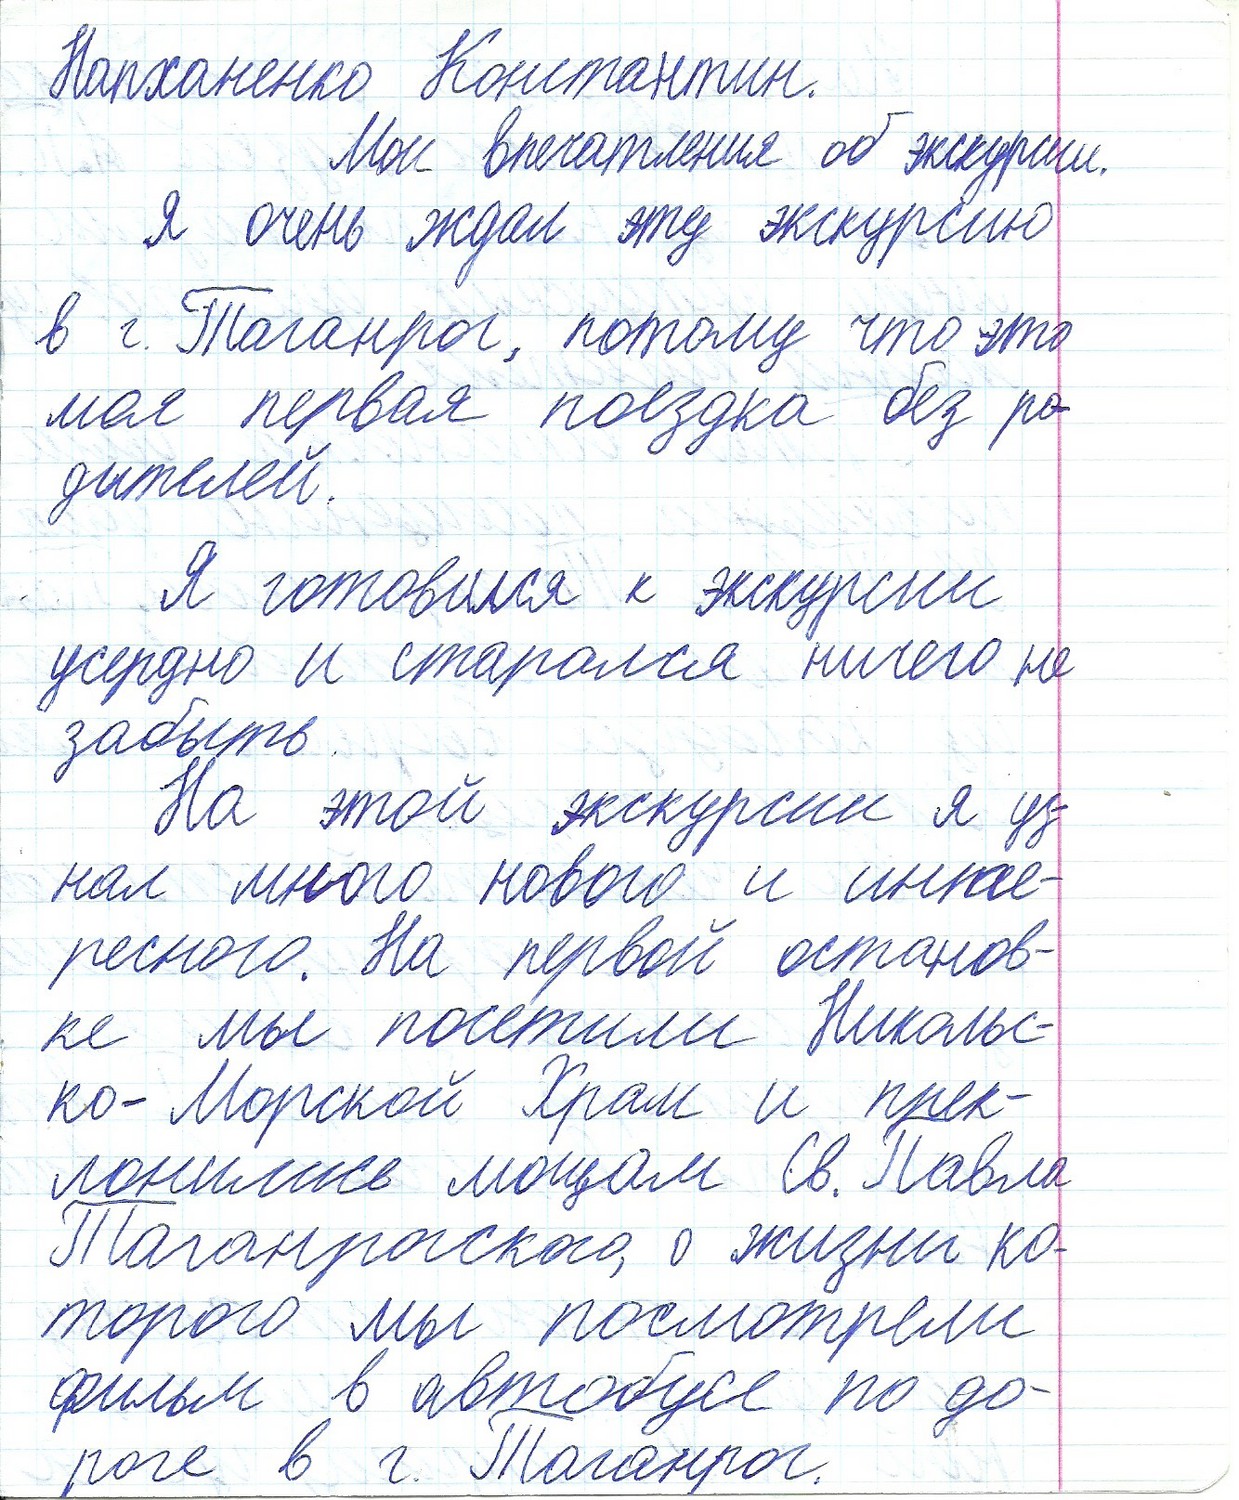 Напханенко Константин.
Мои впечатления об экскурсии.
Я очень ждал эту экскурсию
в г. Таганрог, потому что это
моя первая поездка без ро-
дителей.
Я готовился к экскурсии
усердно и старался ничего не
забыть.
На этой экскурсии я уз-
нал много нового и инте-
ресного. На первой останов-
ке мы посетили Никольс-
ко-Морской Храм и прек-
лонились мощам Св. Павла
Таганрогского, о жизни ко-
торого мы посмотрели
фильм в автобусе по до-
роге в г. Таганрог.